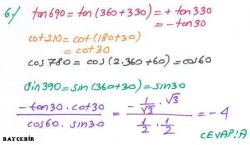 6-) tan690 = tan(360+330) = + tan330
= -tan30
cot210 = cot(180+30)
= cot30
cos780 = cos(2.360+60) = cos60
sin390 = sin(360+30) = sin30
-tan30.cot30 / cos60.sin30 = -1/√3.√3 / 1/2.1/2 = -4
CEVAP:A
BAYCEBİR